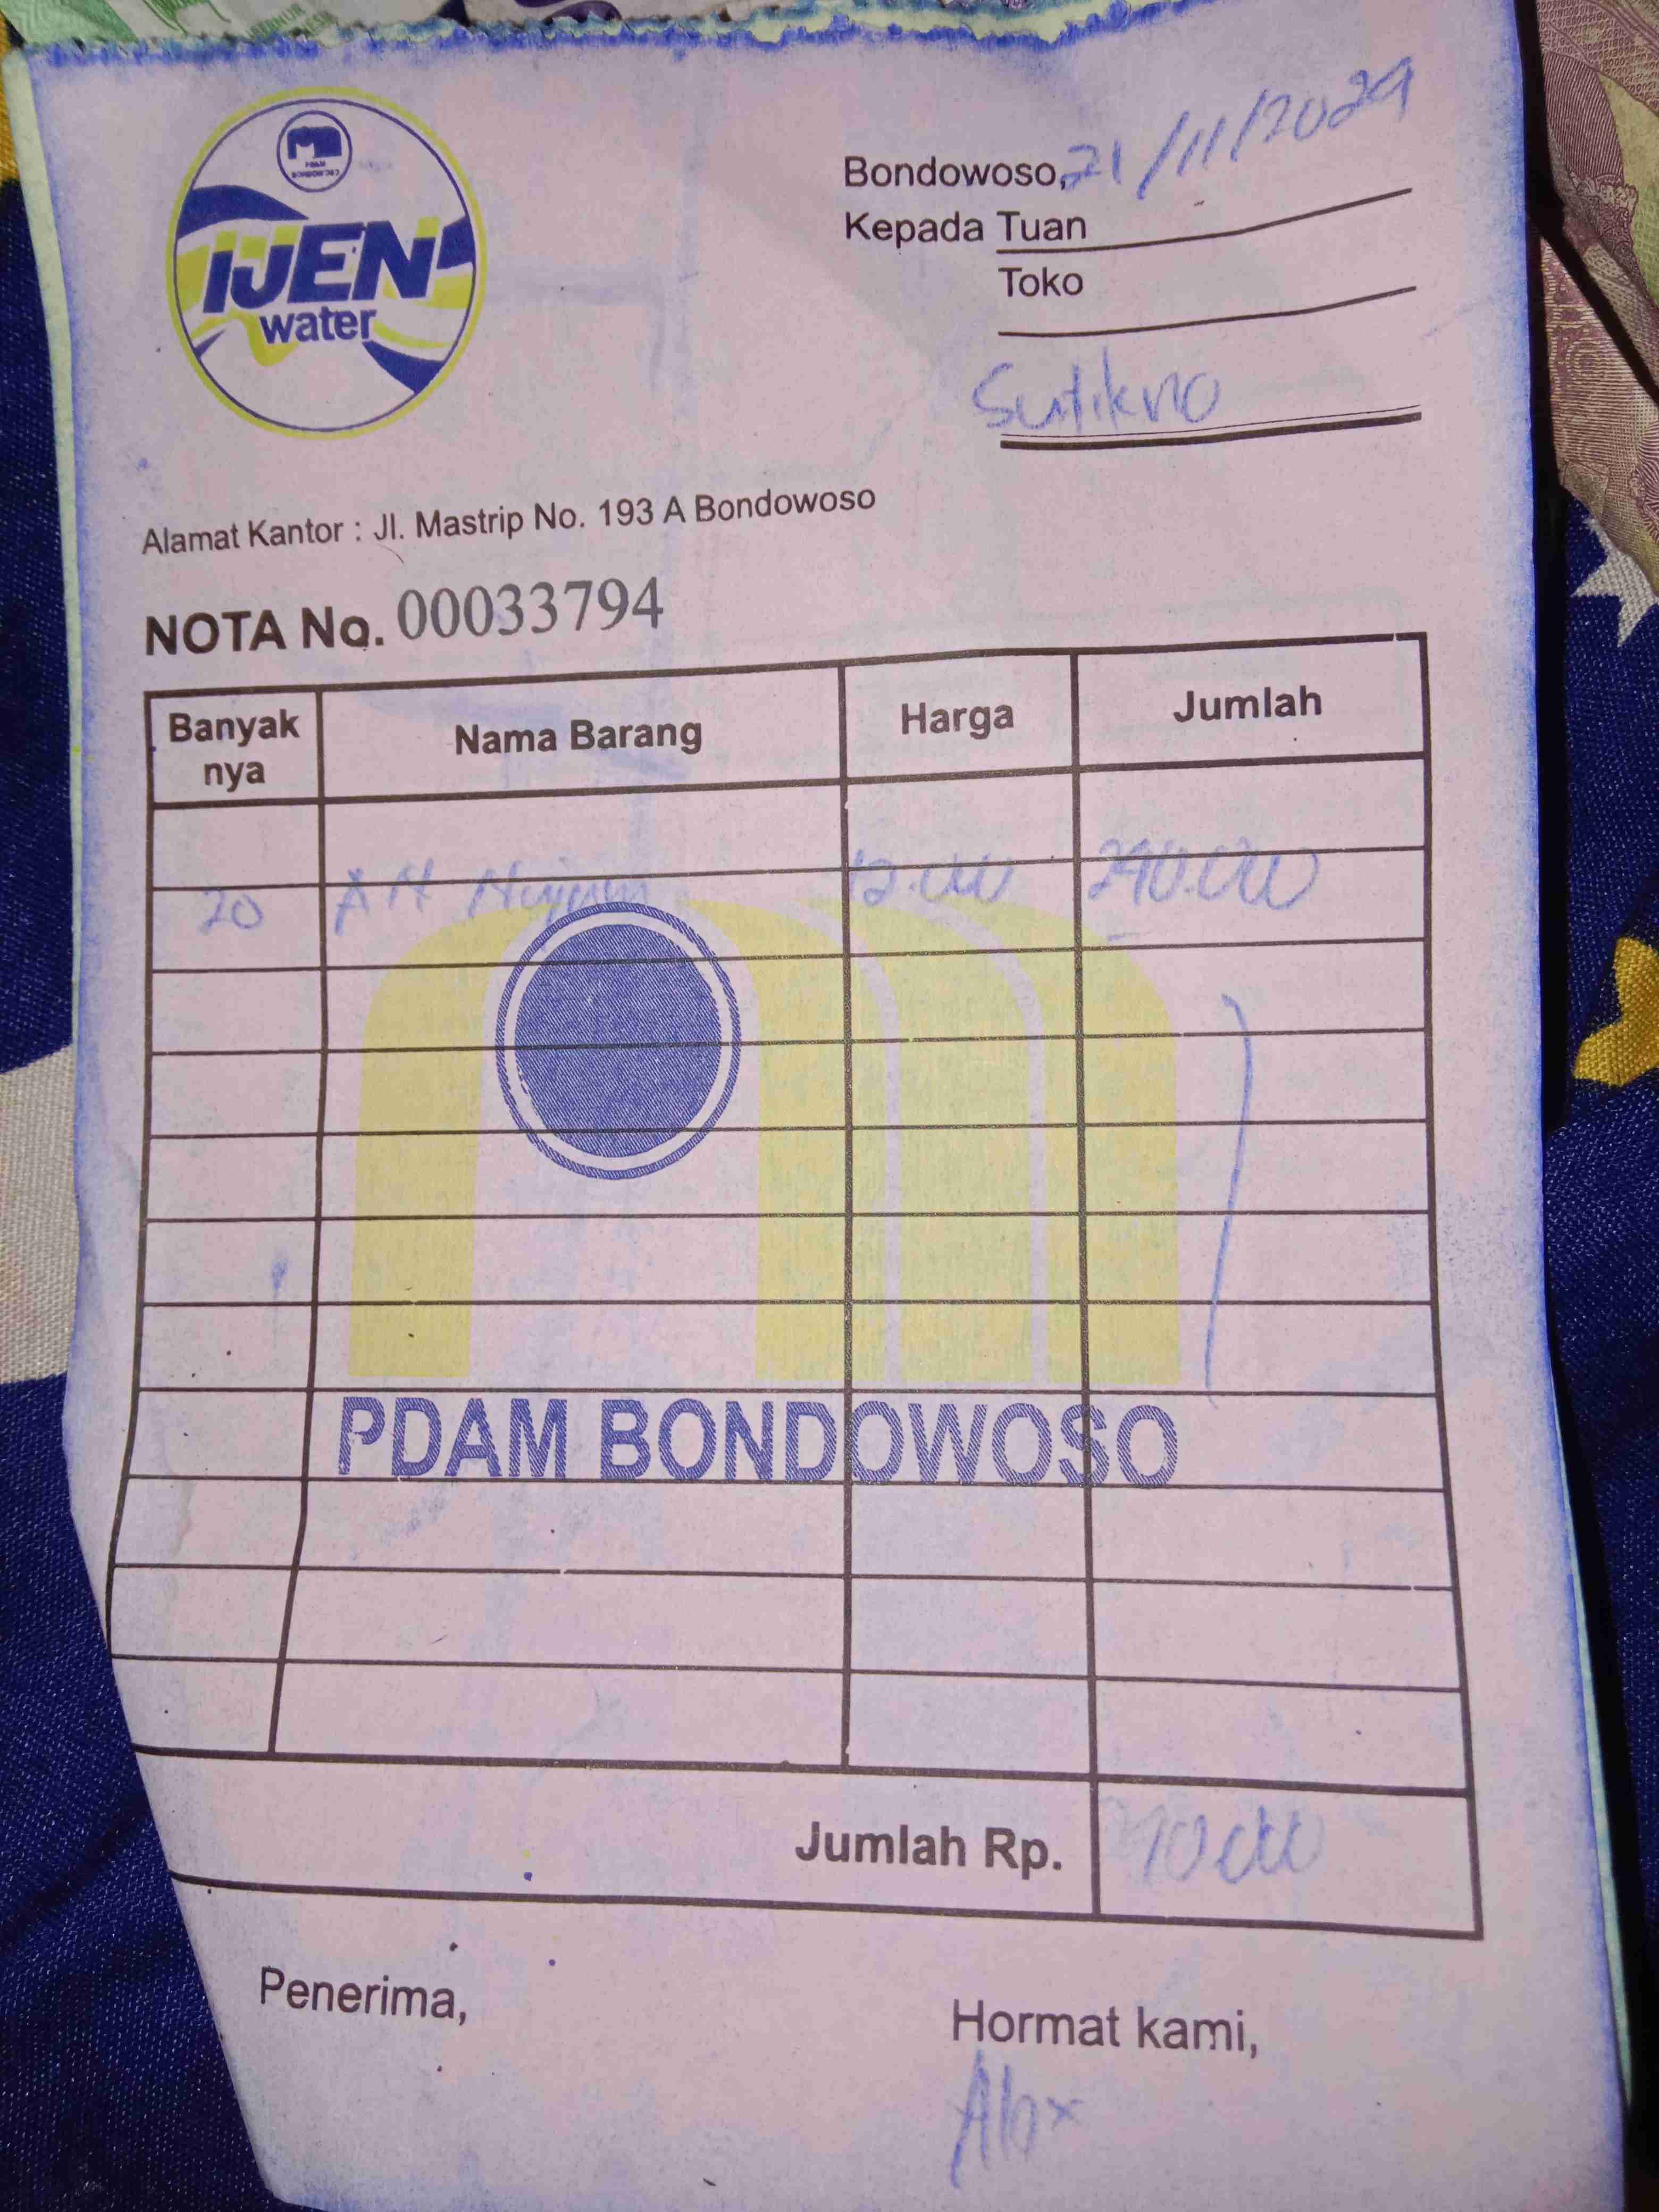 PDAM
BONDOWOSO
IJEN
water
Bondowoso, 21/11/2024
Kepada Tuan
Toko
Sutikno
Alamat Kantor : Jl. Mastrip No. 193 A Bondowoso
NOTA No. 00033794
Banyak
nya
Nama Barang
Harga
Jumlah
20 12.000 240.000
PDAM BONDOWOSO
Jumlah Rp.
Penerima,
Hormat kami,